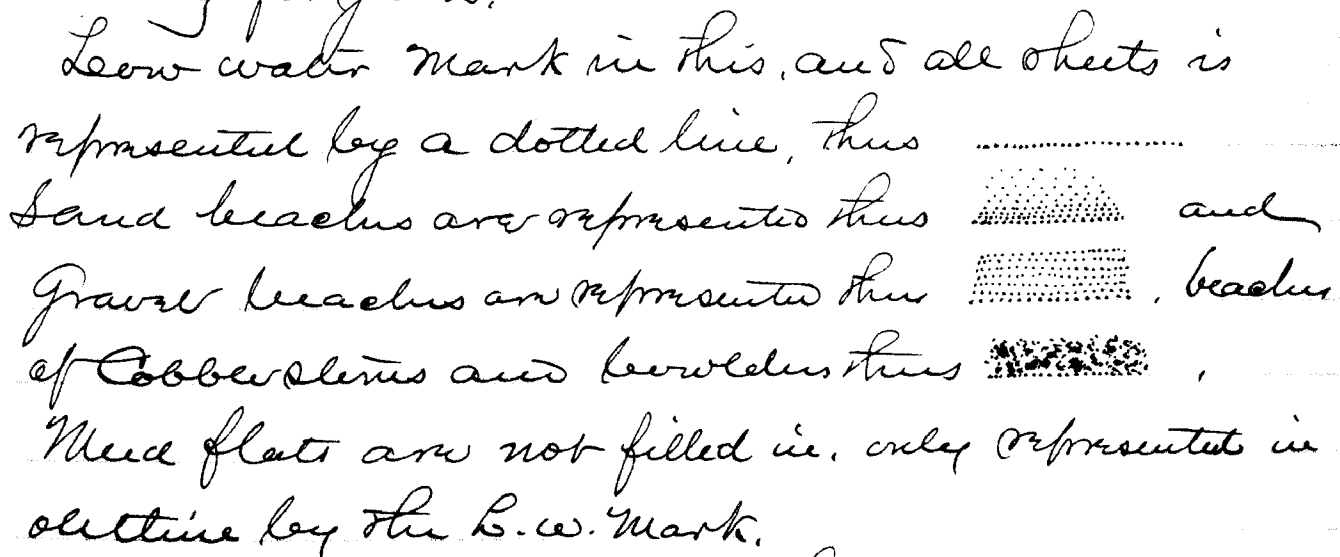 Low water Mark in this, and all sheets is
represented by a dotted line, thus
Sand beaches are represented thus and
Gravel beaches are represented thus . beaches
of Cobblestones and bowlders thus .
Mud flats are not filled in. only represented in
outline by the L.W. Mark.